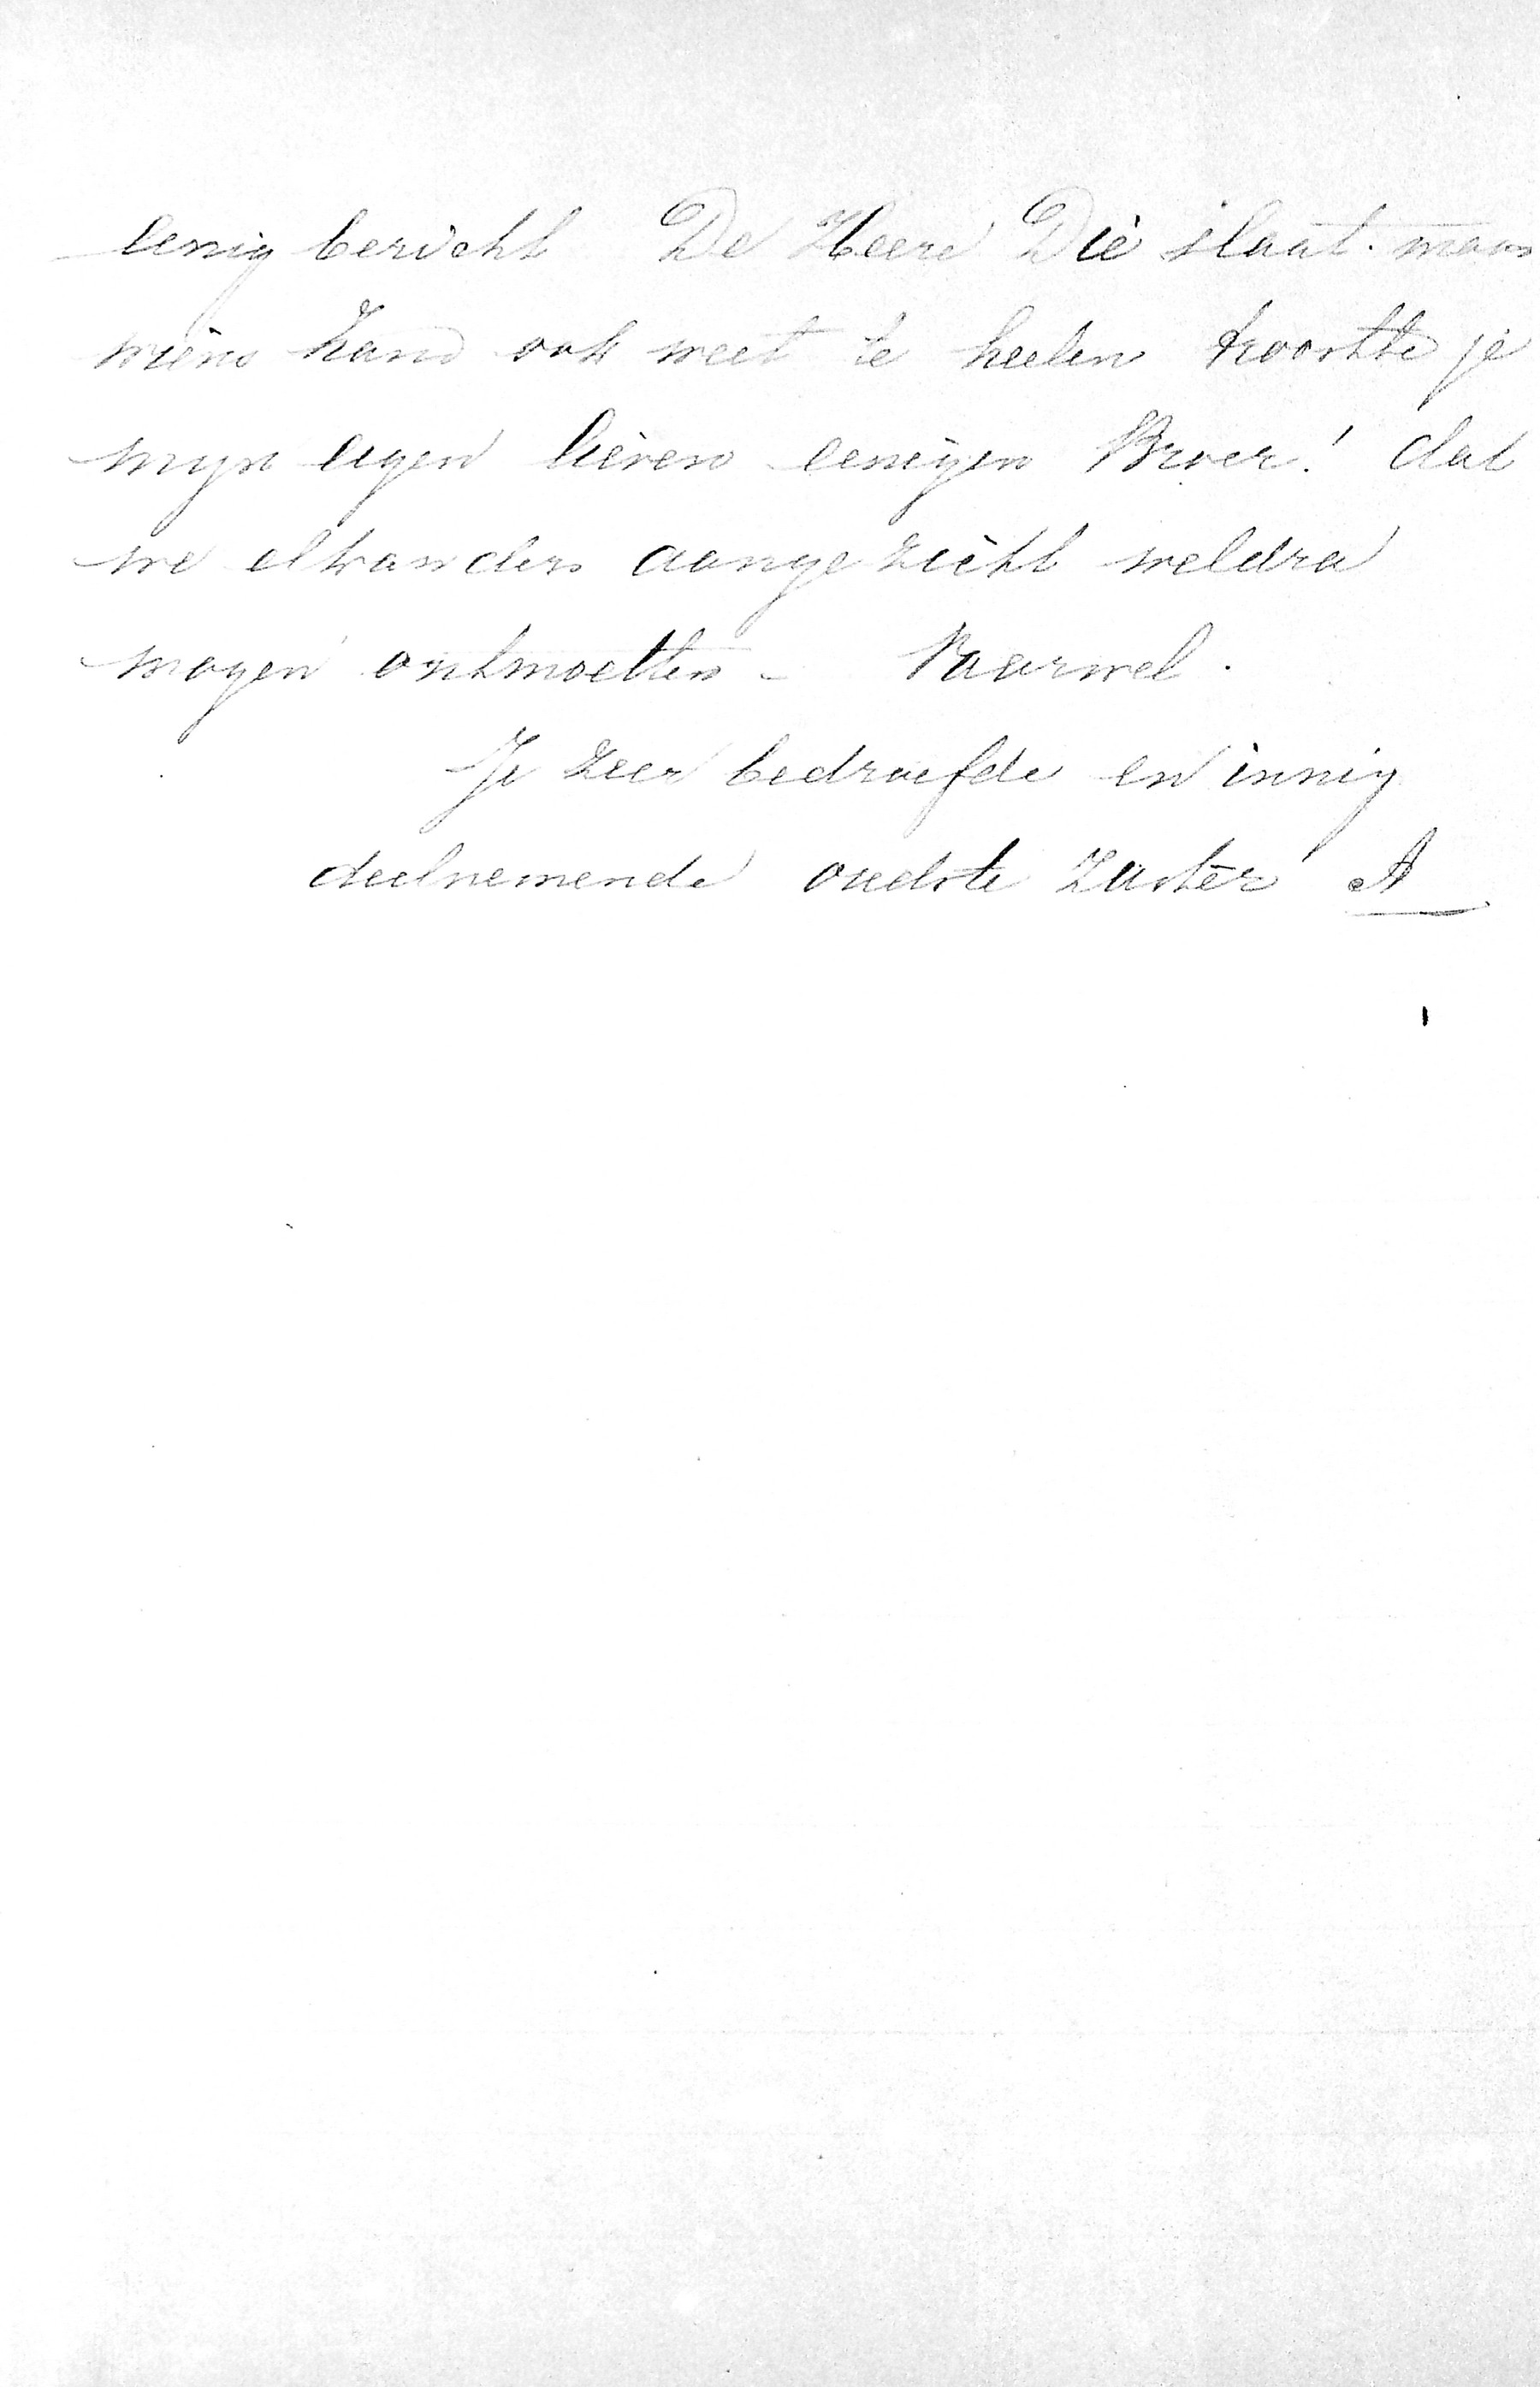 eenig bericht De Heere Die slaat maar
wiens hand ook weet te heelen troostte je
mijn eigen lieven eenigen Broer! dat
we elkanders aangezicht weldra
mogen ontmoetten – Vaarwel.
Je zeer bedroefde en innig
deelnemende oudste Zuster A